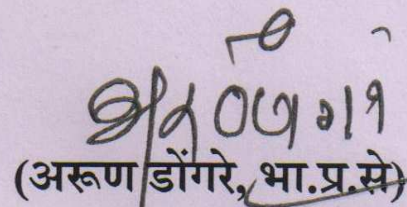 (अरूण डोंगरे, भा.प्र.से)